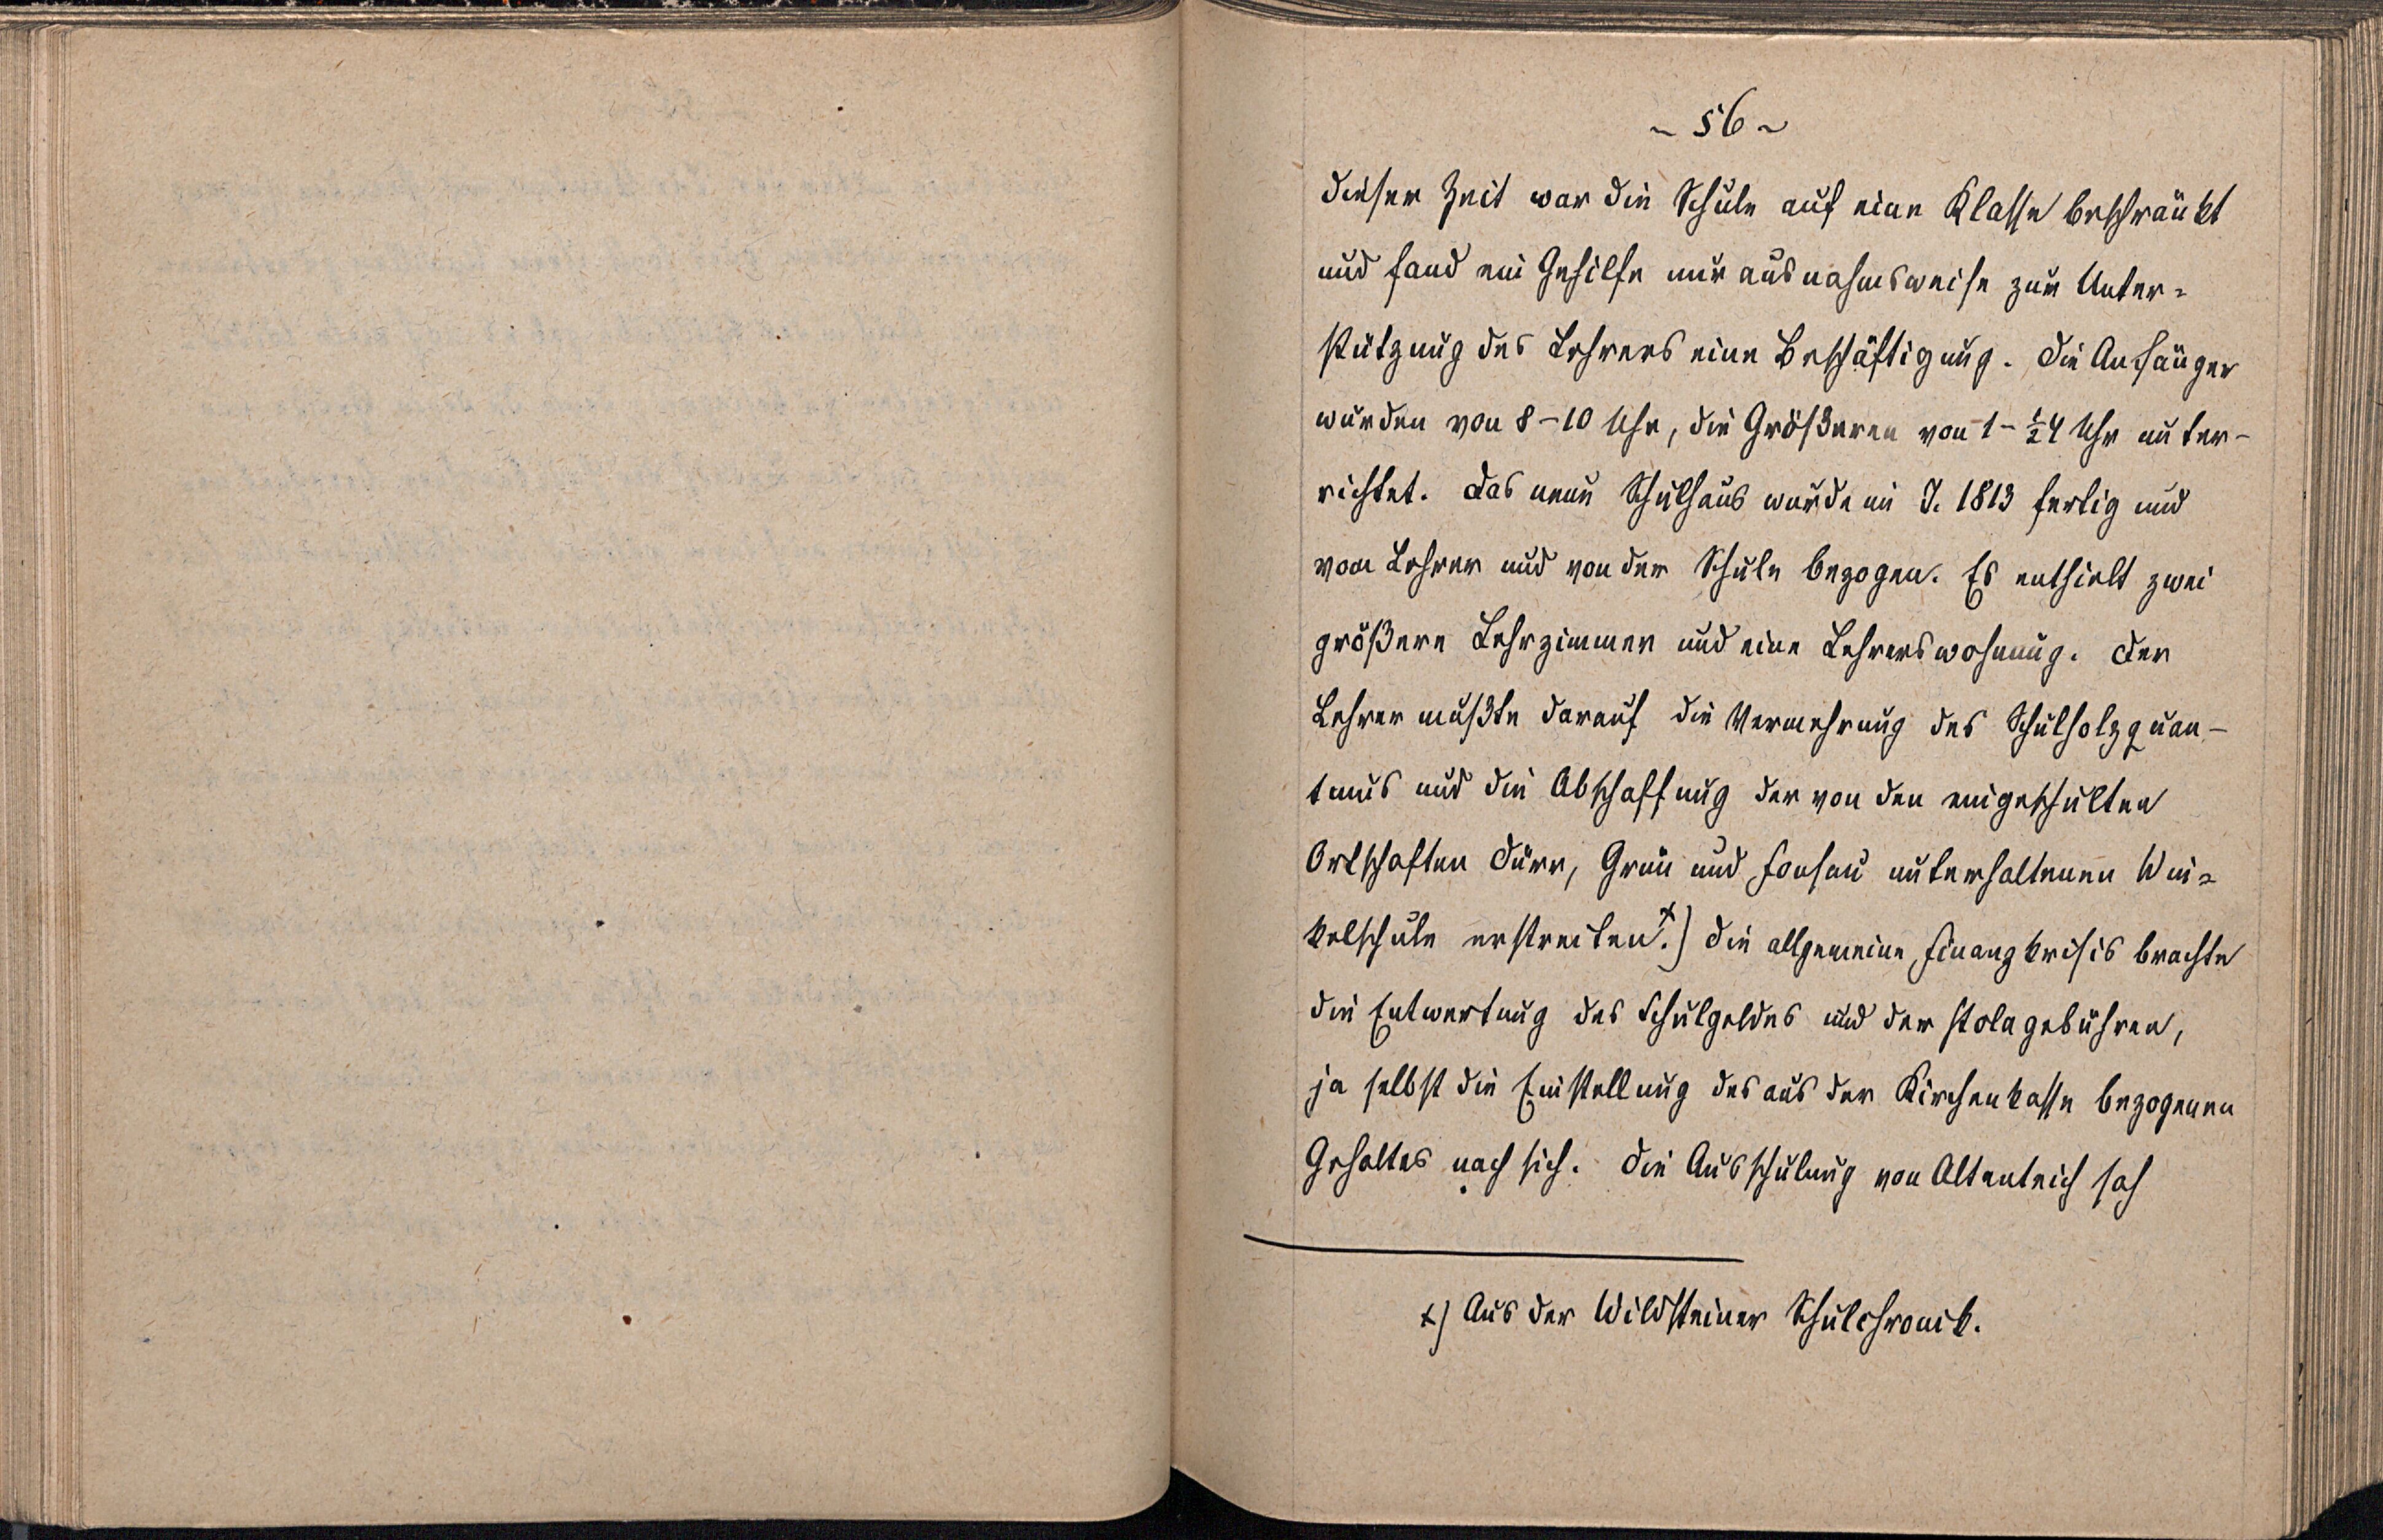 ~ 56 ~
dieser Zeit war die Schule auf eine Klasse beschränkt
und fand ein Gehilfe nur ausnahmsweise zur Unter=
stützung des Lehrers eine Beschäftigung. Die Anfänger
wurden von 8-10 Uhr, die Größeren von 1-½4 Uhr unter-
richtet. Das neue Schulhaus wurde im J. 1813 fertig und
vom Lehrer und von der Schule bezogen. Es enthielt zwei
größere Lehrzimmer und eine Lehrerswohnung. Der
Lehrer mußte darauf die Vermehrung des Schulholzquan-
tums und die Abschaffung der von den eingeschulten
Ortschaften Dürr, Grün und Fonsau unterhaltenen Win=
kelschule erstreiten.x) Die allgemeine Finanzkrisis brachte
die Entwertung des Schulgeldes und der Stolagebühren,
ja selbst die Einstellung des aus der Kirchenkasse bezogenen
Gehaltes nach sich. Die Ausschulung von Altenteich sah
x) Aus der Wildsteiner Schulchronik.